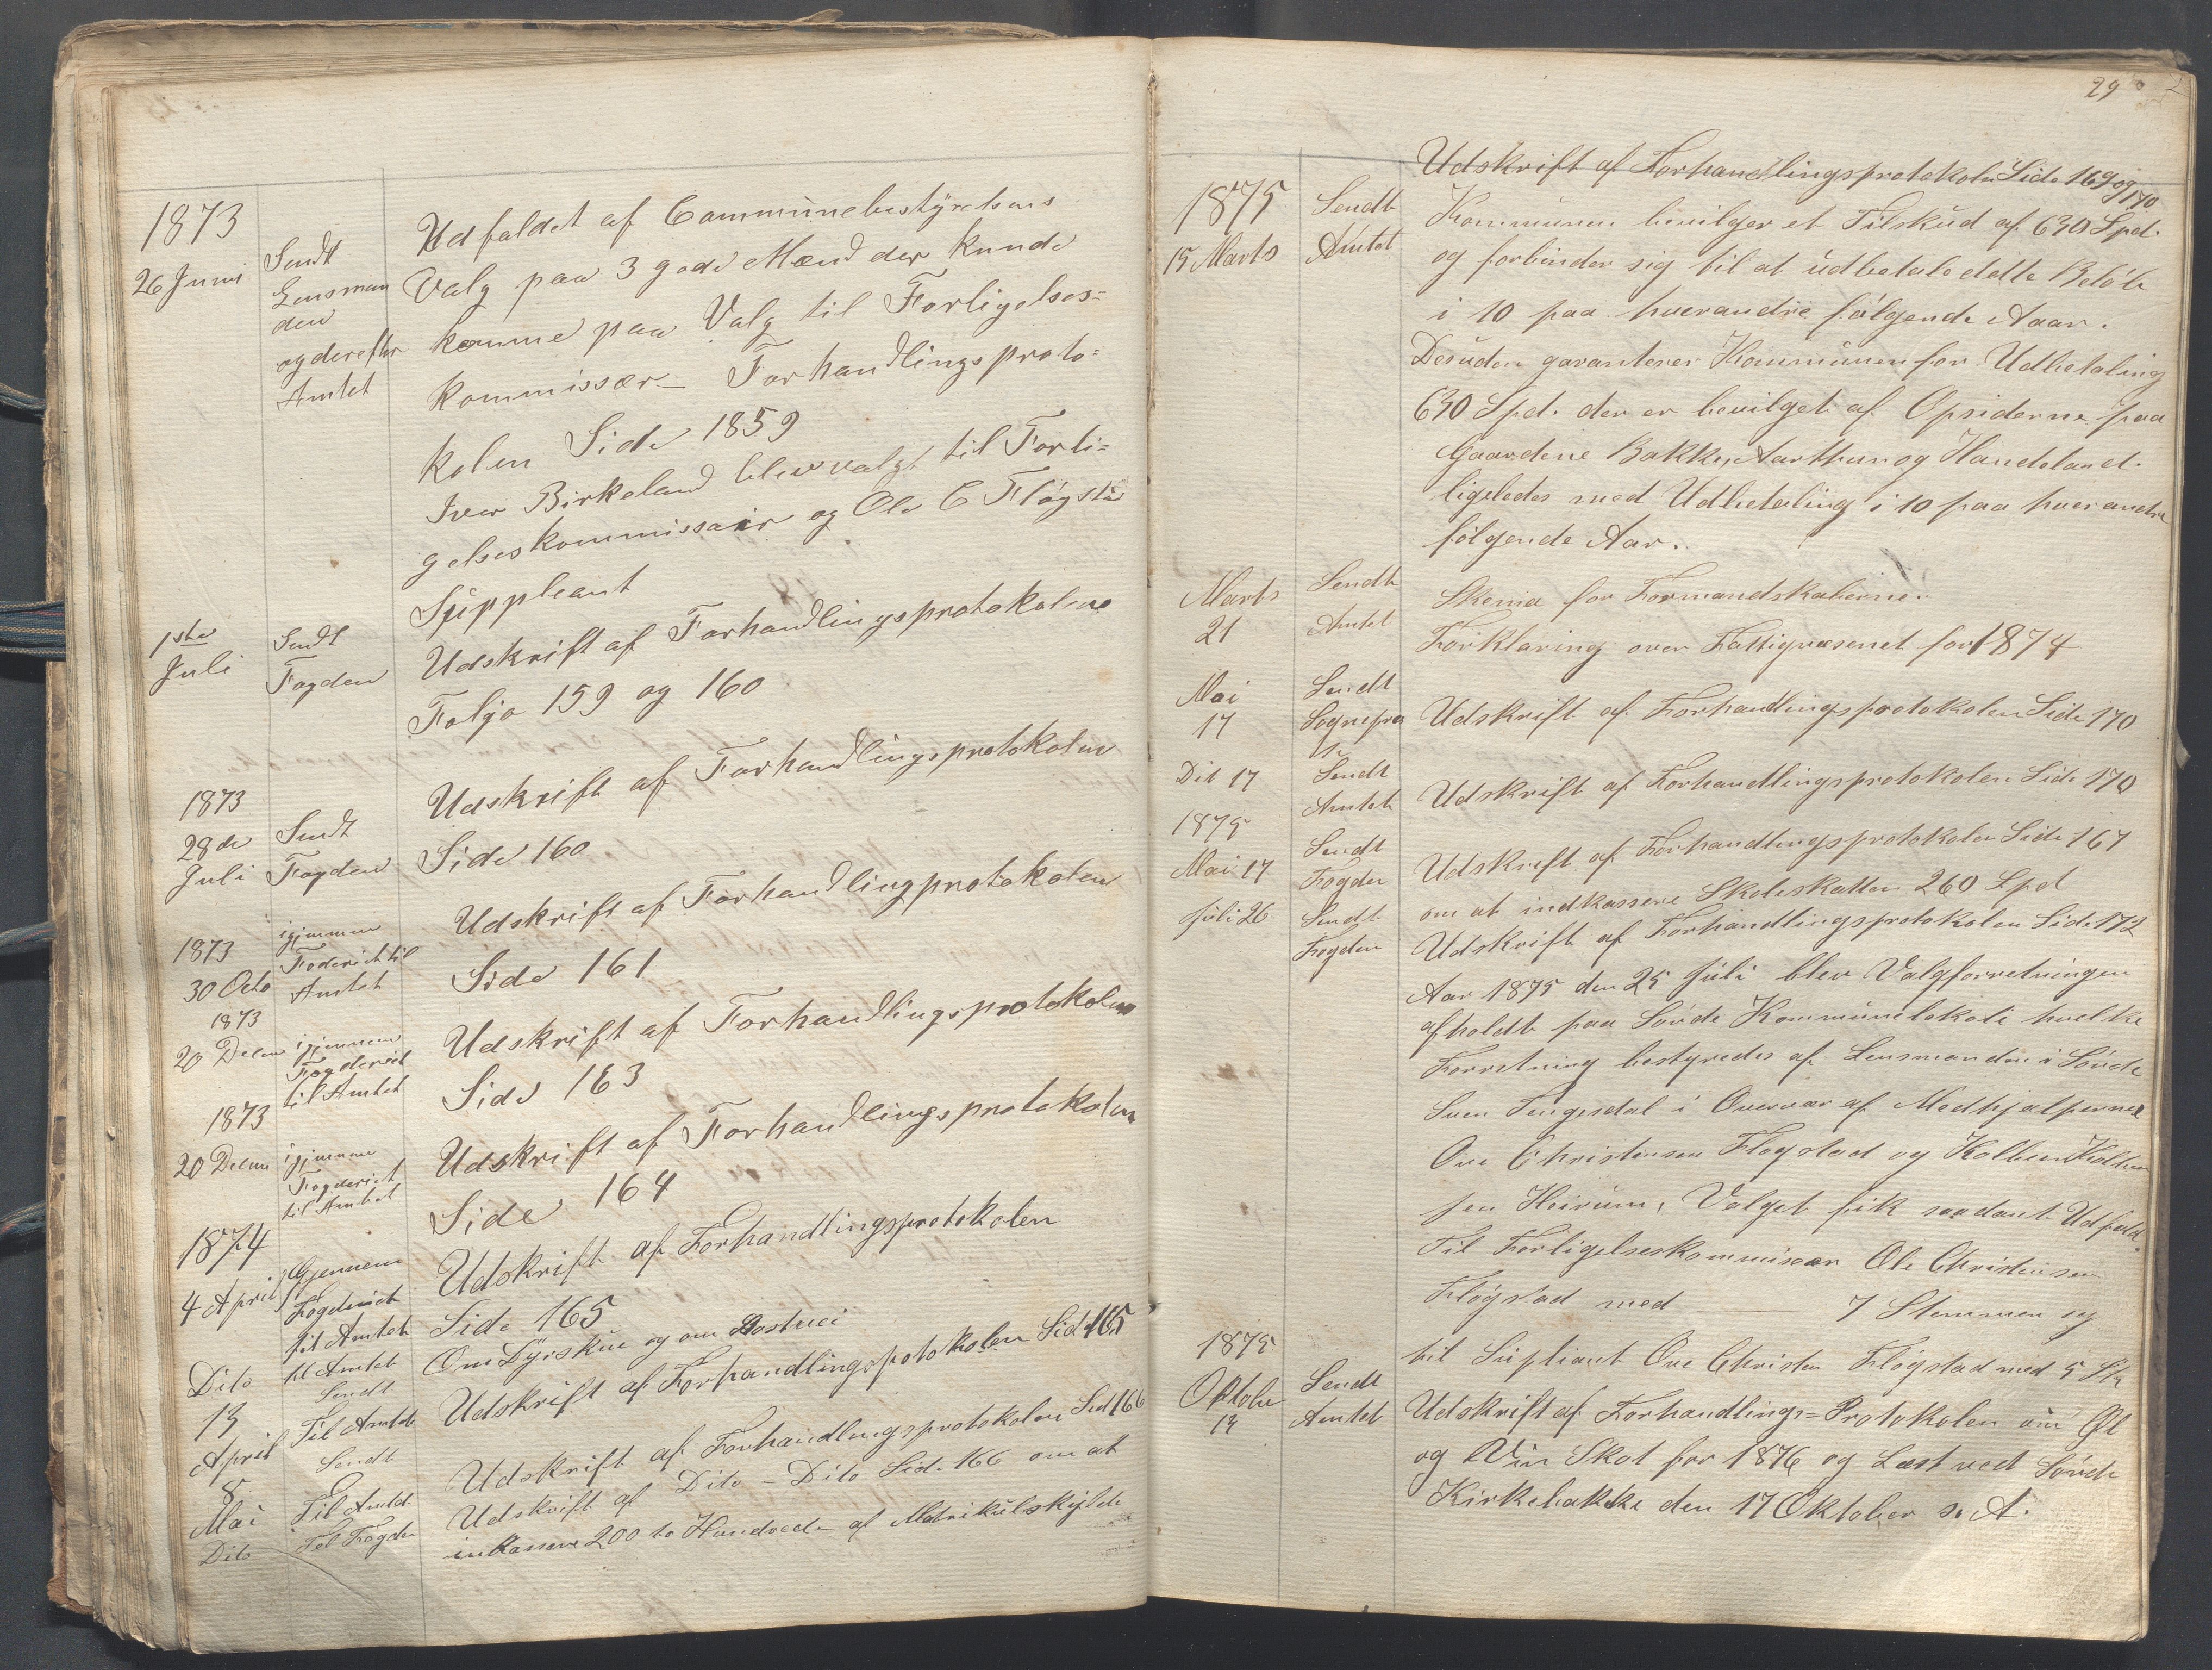 1873
26 Juni
Sendt
Lensman
den
og derefter
Amtet
Udfaldet af Communebestyrelsens
Valg paa 3 gode Mænd der kunde
komme paa Valg til Forligelses=
kommissær Forhandlingsproto=
kolen Side 1859
Iver Birkeland blev valgt til Forli=
gelseskommissair og Ole C Fløgstad
Suppleant
1ste
Juli
Sendt
Fogden
Udskrift af Forhandlingsprotokolen
Foljo 159 og 160
1873
28de
Juli
Sendt
Fogden
Udskrift af Forhandlingsprotokolen
Side 160
1873
30 Octo
igjennem
Foderiet til
Amtet
Udskrift af Forhandlingprotokolen
Side 161
1873
20 Decem
igjennem
Fogderiet
til Amtet
Udskrift af Forhandlingsprotokolen
Side 163
1873
20 Decem
igjennem
Fogderiet
til Amtet
Udskrift af Forhandlingsprotokolen
Side 164
1874
4 April
Gjennem
Fogderiet
til Amtet
Udskrift af Forhandlingsprotokolen
Side 165
Dito
til Amtet
Om Dyrskue og om Postvei
13
April
Sendt
Til Amtet
Udskrift af Forhandlingsprotokolen Side 165
8
Mai
Sendt
Til Amtet
Udskrift af Forhandlingsprotokolen Sid 166
Dito
Til Fogden
Udskrift af Dito - Dito Side 166 om at
inkassere 200 to Hundrede af Matrikulskylde
29
Udskrift af Forhandlingsprotokolen Side 169 og
170
1875
15 Marts
Sendt
Amtet
Kommunen bevilger et Tilskud af 630 Spd.
og forbinder sig til at udbetale dette Beløb
i 10 paa hverandre følgende Aaar.
Desuden garanterer Kommunen for Udbetaling
630 Spd. der er bevilget af Opsiderne paa
Gaardene Bakke, Aarthun og Handeland.
ligeledes med Udbetaling i 10 paa hverandre
følgende Aar.
Marts
21
Sendt
Amtet
Skema for Formandskaberne.
Forklaring over Fattigvæsenet for 1874
Mai
17
Sendt
Sognepræ
Udskrift af Forhandlingsprotokolen Side 170
Dit 17
Sendt
Amtet
Udskrift af Forhandlingsprotokolen Side 170
1875
Mai 17
Sendt
Fogden
Udskrift af Forhandlingsprotokolen Side 167
om at indkassere Skoleskatten 260 Spd
Juli 26
Sendt
Fogden
Udskrift af Forhandlingsprotokolen Side 172
Aar 1875 den 25 Juli blev Valgforretningen
afholdt paa Søvde Kommunelokale hvelke
Forretning bestyredes af Lensmanden i Søvde
Sven Tengesdal i Overvær af Medhjælperne
Ove Christensen Fløgstad og Kolben Kolben
sen Heirum, Valget fik saadant Udfald.
Til Forligelseskommisær Ole Christensen
Fløgstad med 7 Stemmer og
til Supliant Ove Christen Fløgstad med 5 St
1875
Oktober
13
Sendt
Amtet
Udskrift af Forhandlings=Protokolen om Øl
og Vin Skat for 1876 og Læst ved Søvde
Kirkebakke den 17 Oktober s. A.